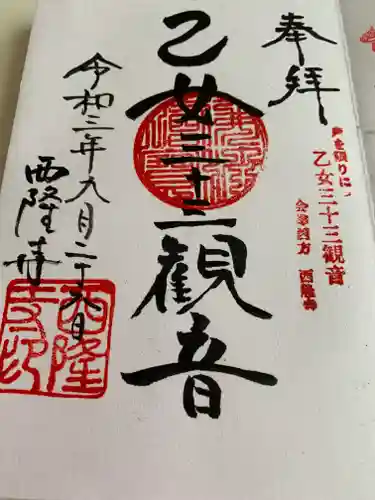 奉拝
乙女三十三観音
会津西方 西隆寺
乙女三十三観音
令和二年九月二十六日
西隆寺
西隆
寺印